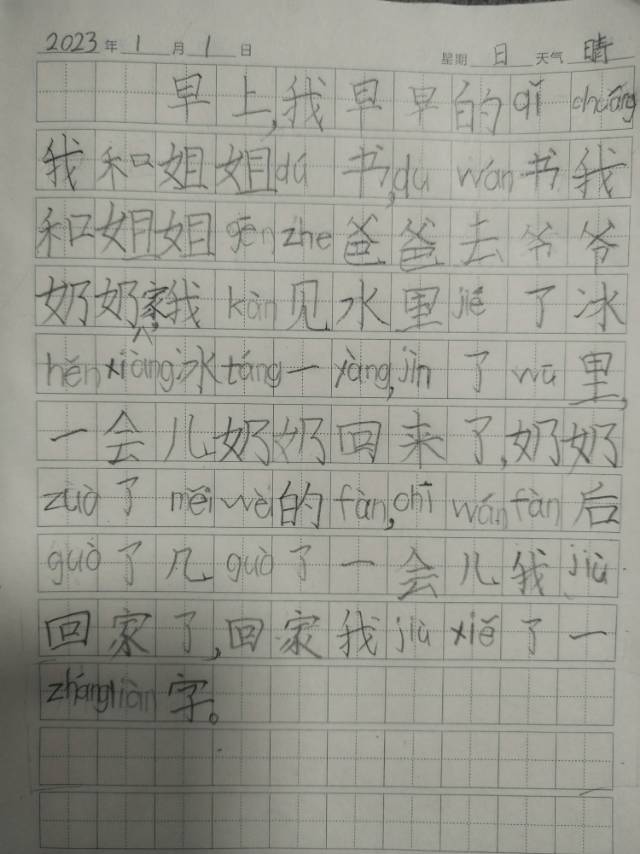 2023年1月1日 星期日天气晴
早上,我早早的qǐ chuáng
我和姐姐dú书,dú wán书我
和姐姐gēn zhe爸爸去爷爷
奶奶家,我kàn见水里jié了冰
hěn xiàng冰táng一yàng,jìn了wū里,
一会儿奶奶回来了,奶奶
zuò了měi wèi的fàn,chī wán fàn后
guò了几guò了一会儿我jiù
回家了,回家我jiù xiě了一
zhāng liàn字。